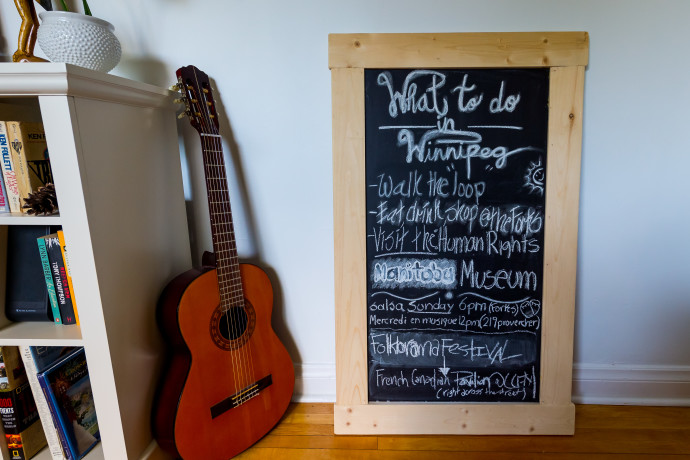 What to do
in
Winnipeg
-Walk the "loop"
-Eat drink shop @theForks
-Visit the Human Rights
Manitoba Museum
Salsa Sunday 6pm (Forks)
Mercredi en musique 12pm (219 provencher)
Folklorama Festival
French Canadian Pavilion @CCFM
(right across the street)
KEN FOLLETT
KEN
TOBY THOMPSON